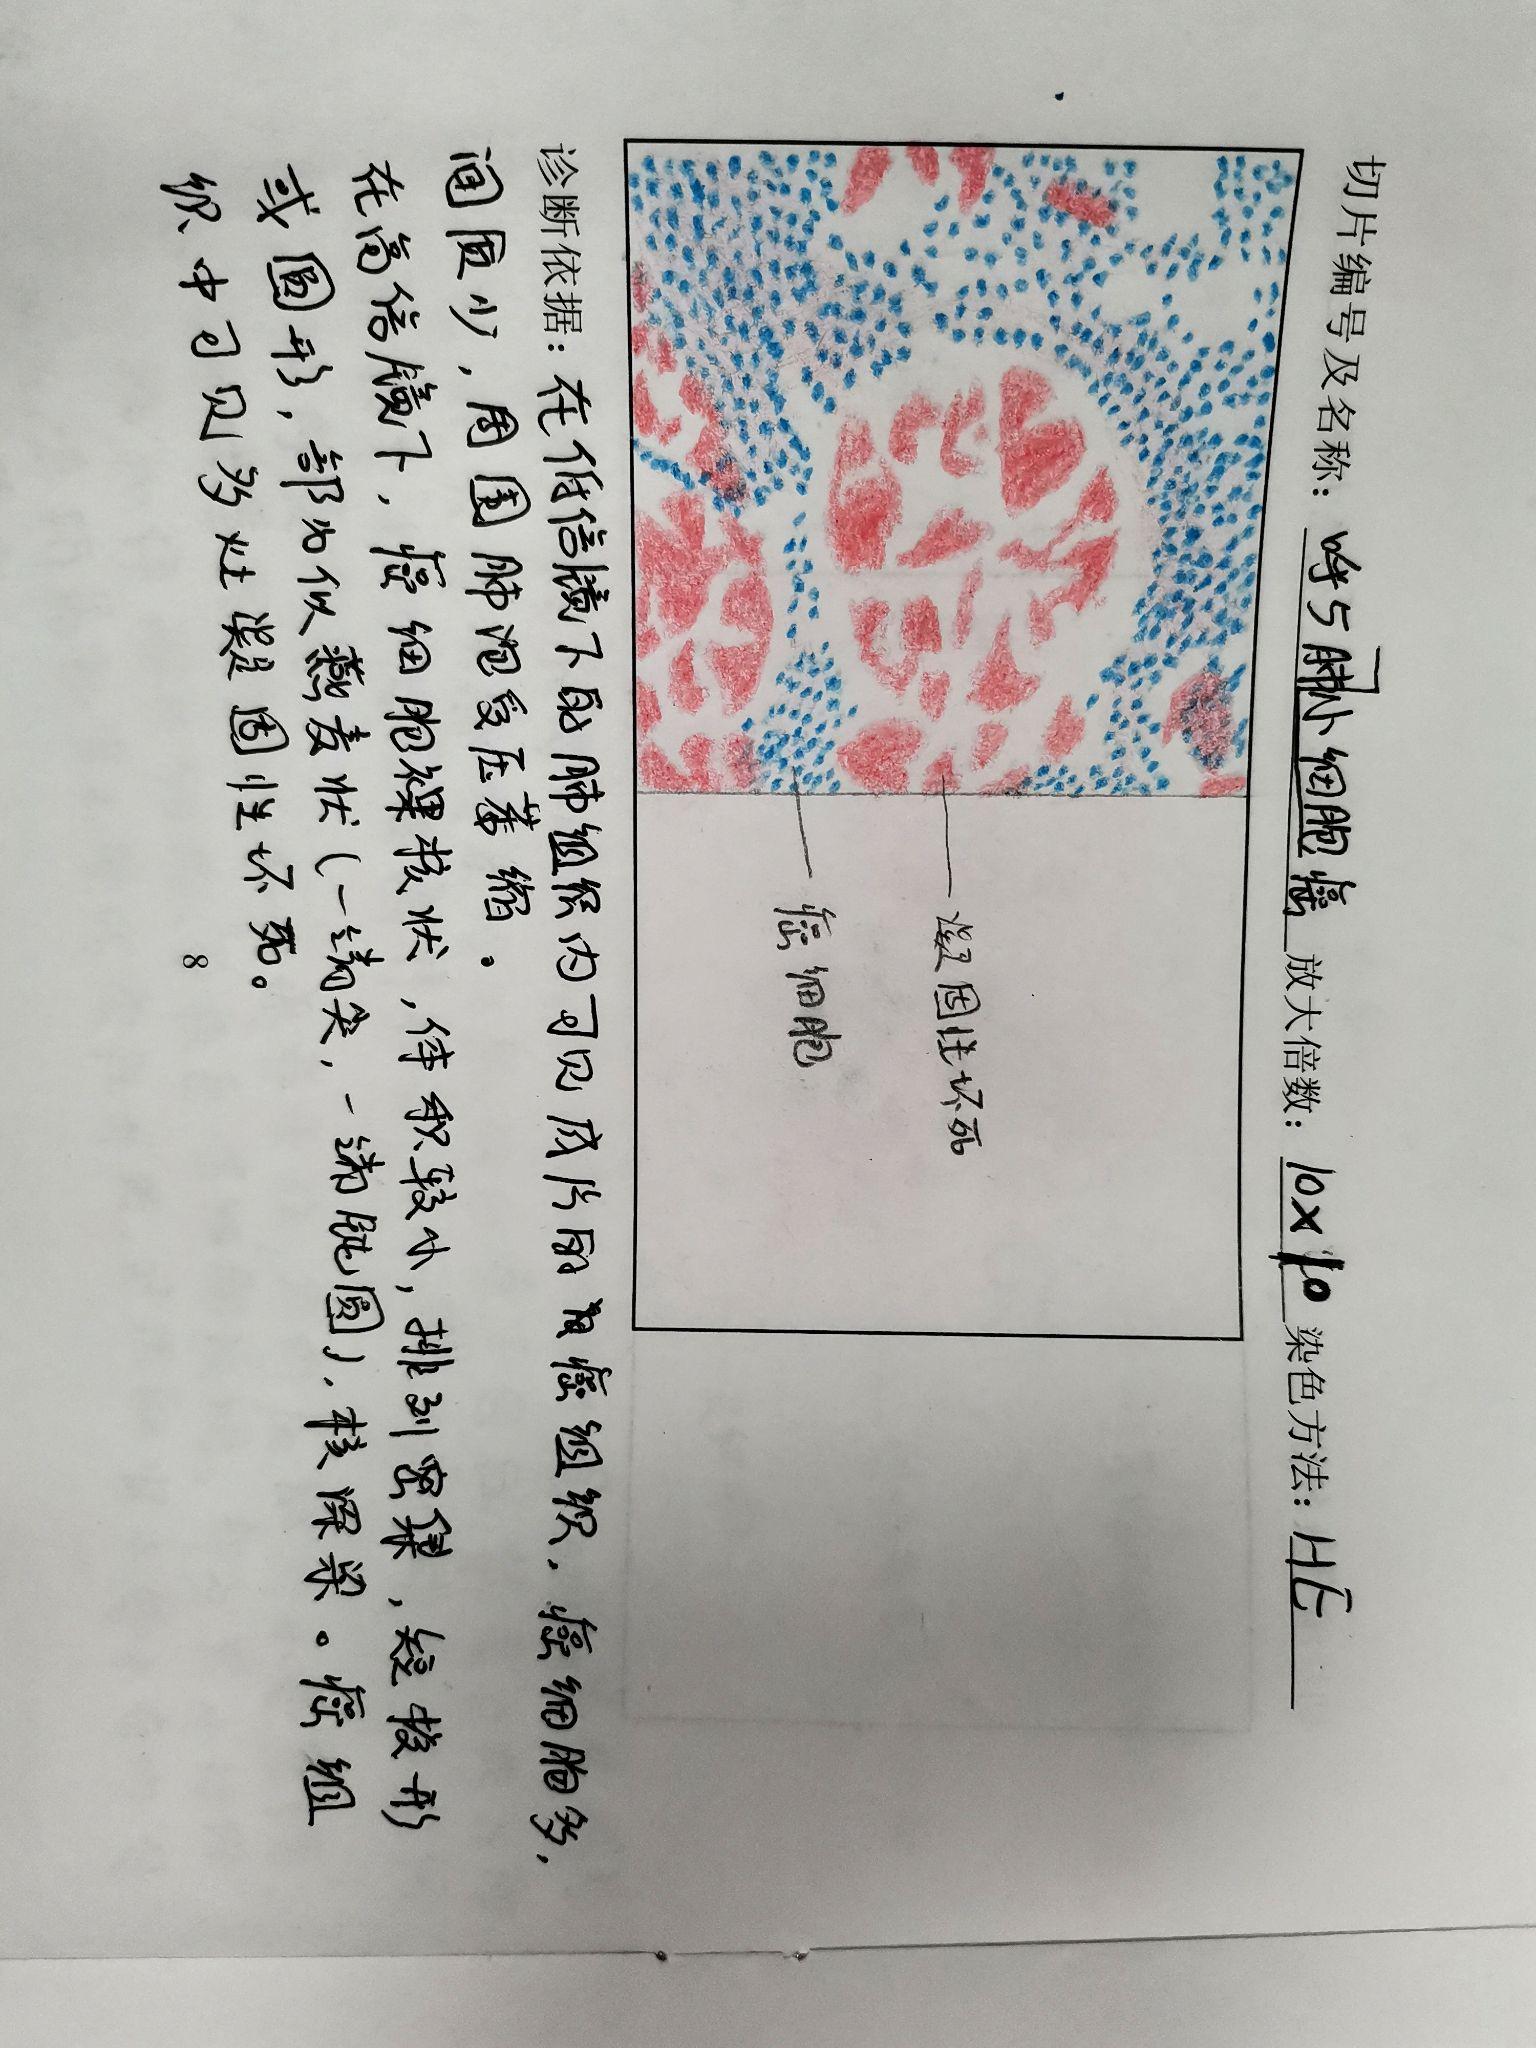 切片编号及名称：呼5 肺小细胞癌 放大倍数：10×10 染色方法：HE
凝固性坏死
癌细胞
诊断依据：在低倍镜下的肺组织内可见成片的癌组织，癌细胞多，
间质少，周围肺泡受压萎缩。
在高倍镜下，癌细胞裸核状，体积较小，排列密集，短梭形
或圆形，部分似燕麦状（一端尖，一端钝圆），核深染。癌组
织中可见多处凝固性坏死。
8